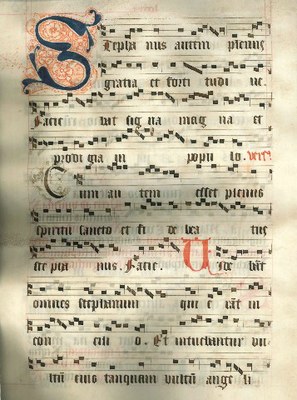 Stepha nus autem plenus
gratia et forti tudi ne.
Facie bat sig na mag na et
prodi gia in popu lo. vers.
Cum au tem esset plenus
spiritu sancto et fi de bea tus
ste pha nus. Facie. Vide bāt
omnes stephanum qui e rāt in
con ci li o. Et intuebantur vul
tū eius tanquam vultū ange li